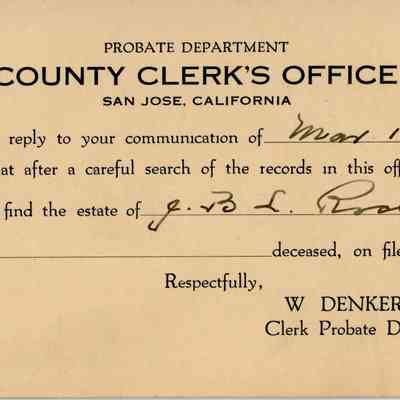 PROBATE DEPARTMENT
COUNTY CLERK'S OFFICE
SAN JOSE, CALIFORNIA
reply to your communication of Mar 1
at after a careful search of the records in this off
find the estate of J. B. L.
deceased, on file
Respectfully,
W DENKER
Clerk Probate D